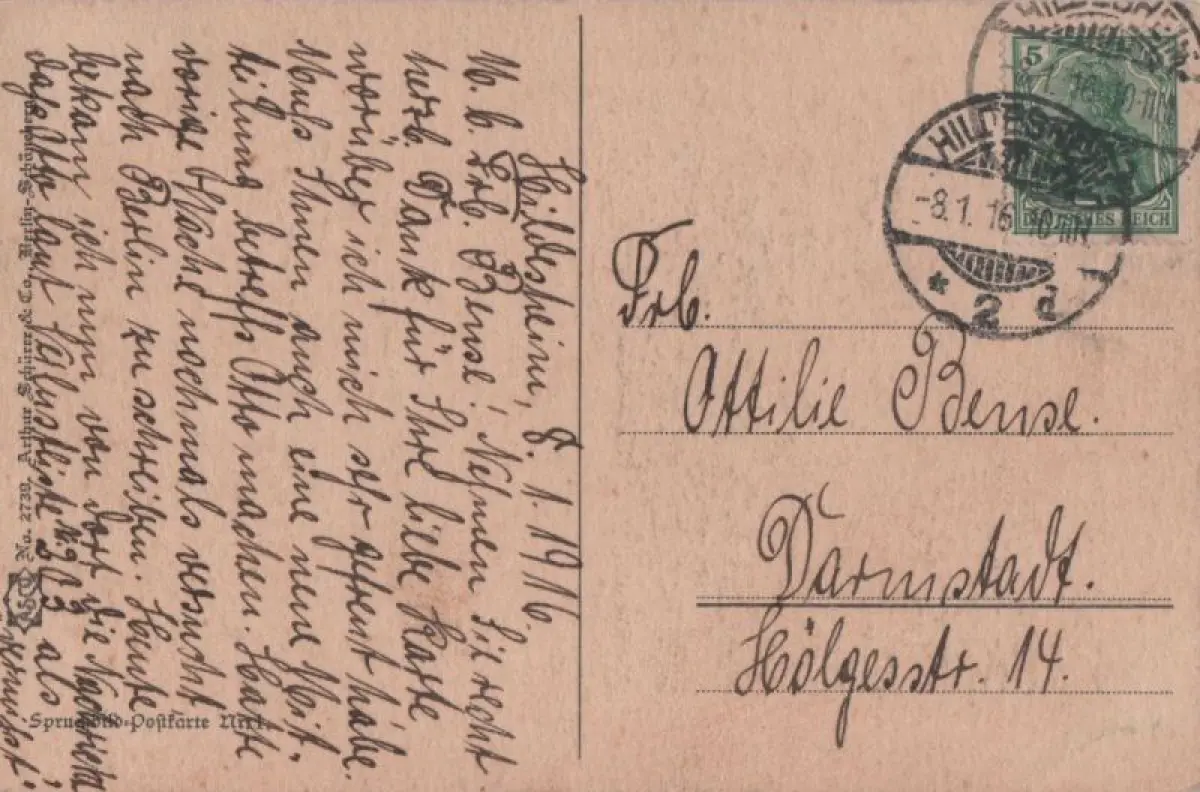 Hildesheim, 8. 1. 1916.
M. b. Frl. Bense! Nehmen Sie recht
herzl. Dank für Ihre liebe Karte
worüber ich mich sehr gefreut habe.
Muß Ihnen auch eine neue Mit-
teilung betreffs Otto machen. Hatte
vorige Woche nochmals versucht
nach Berlin zu schreiben. Heute
bekam ich nun von dort die Nachricht
daß Otto laut Verlustliste 303 als
vermißt
Frl.
Ottilie Bense.
Darmstadt.
Hölgesstr. 14.
HILDESHEIM
-8.1.16
* 2 d
5
DEUTSCHES REICH
No. 2739. Arthur Schürer & Co. Berlin-Schöneberg
Spruchbild-Postkarte